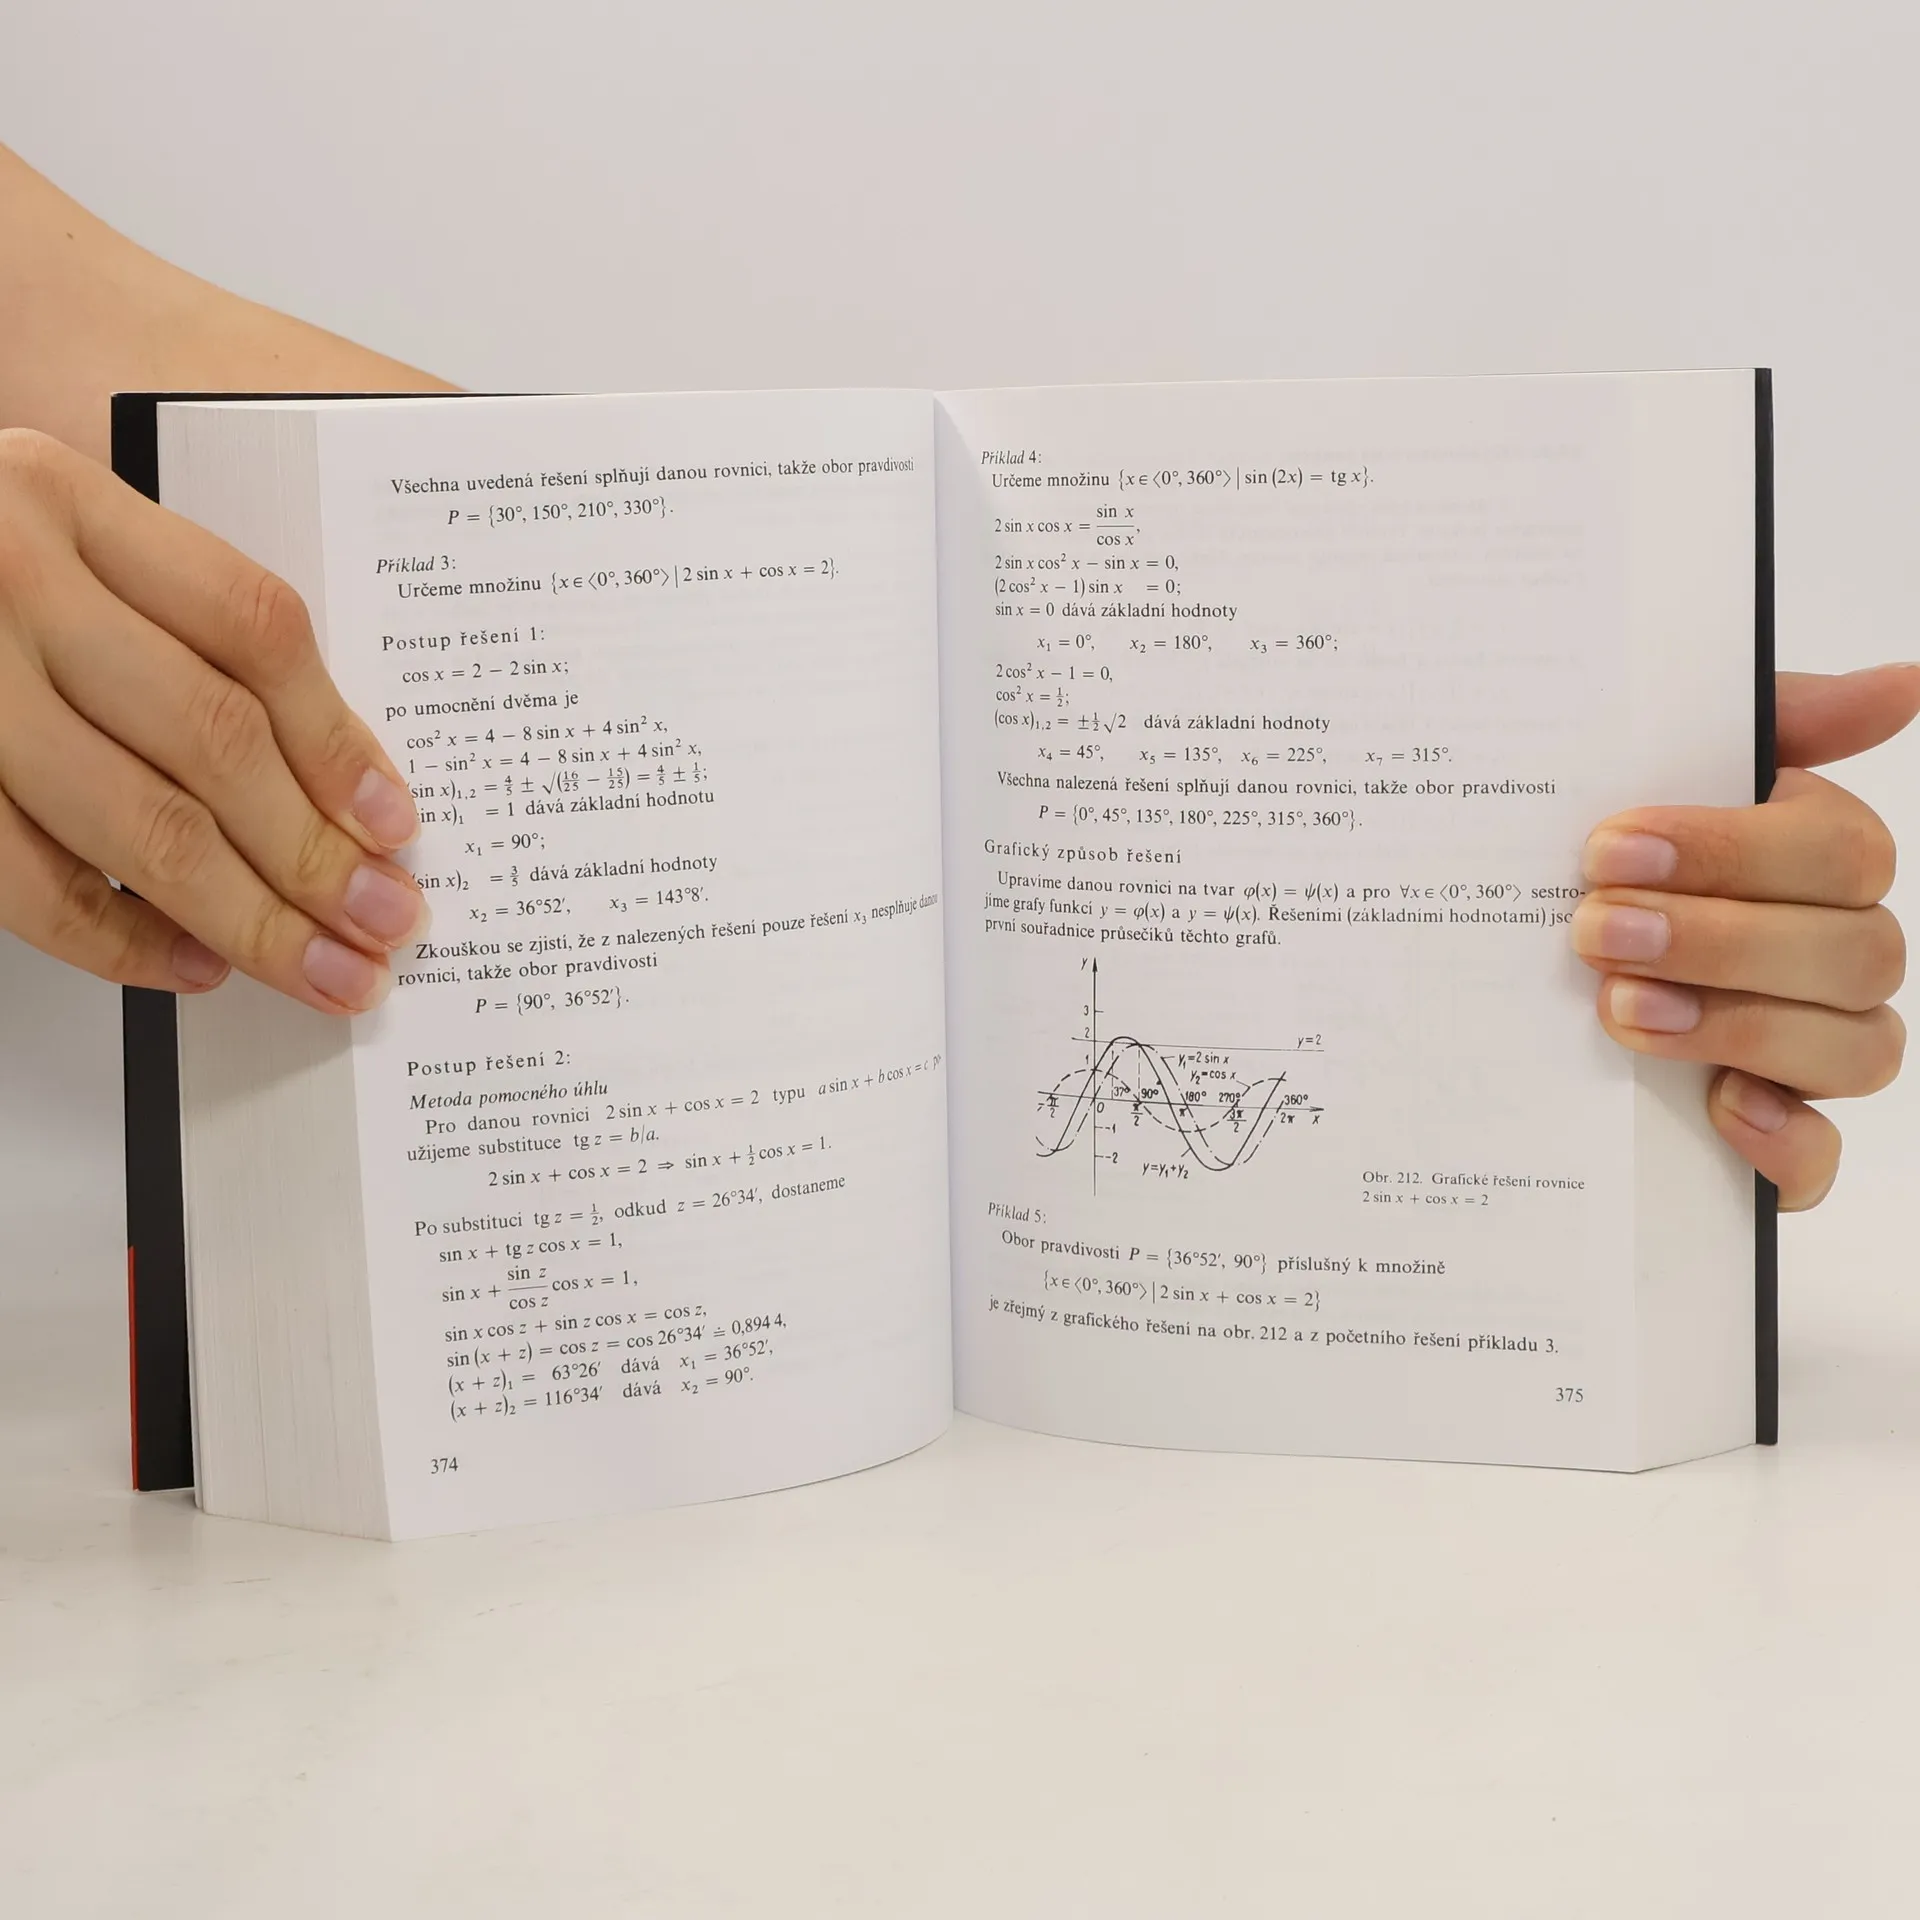 Všechna uvedená řešení splňují danou rovnici, takže obor pravdivosti
P = {30°, 150°, 210°, 330°}.
Příklad 3:
Určeme množinu {x ∈ ⟨0°, 360°⟩ | 2 sin x + cos x = 2}.
Postup řešení 1:
cos x = 2 − 2 sin x;
po umocnění dvěma je
cos² x = 4 − 8 sin x + 4 sin² x,
1 − sin² x = 4 − 8 sin x + 4 sin² x,
(sin x)₁,₂ = 4/5 ± √(16/25 − 15/25) = 4/5 ± 1/5;
in x)₁ = 1 dává základní hodnotu
x₁ = 90°;
(sin x)₂ = 3/5 dává základní hodnoty
x₂ = 36°52′, x₃ = 143°8′.
Zkouškou se zjistí, že z nalezených řešení pouze řešení x₃ nesplňuje danou
rovnici, takže obor pravdivosti
P = {90°, 36°52′}.
Postup řešení 2:
Metoda pomocného úhlu
Pro danou rovnici 2 sin x + cos x = 2 typu a sin x + b cos x = c po-
užijeme substituce tg z = b/a.
2 sin x + cos x = 2 ⇒ sin x + 1/2 cos x = 1.
Po substituci tg z = 1/2, odkud z = 26°34′, dostaneme
sin x + tg z cos x = 1,
sin x + sin z/cos z cos x = 1,
sin x cos z + sin z cos x = cos z,
sin (x + z) = cos z = cos 26°34′ ≐ 0,894 4,
(x + z)₁ = 63°26′ dává x₁ = 36°52′,
(x + z)₂ = 116°34′ dává x₂ = 90°.
374
Příklad 4:
Určeme množinu {x ∈ ⟨0°, 360°⟩ | sin (2x) = tg x}.
2 sin x cos x = sin x/cos x,
2 sin x cos² x − sin x = 0,
(2 cos² x − 1) sin x = 0;
sin x = 0 dává základní hodnoty
x₁ = 0°, x₂ = 180°, x₃ = 360°;
2 cos² x − 1 = 0,
cos² x = 1/2;
(cos x)₁,₂ = ±1/2 √2 dává základní hodnoty
x₄ = 45°, x₅ = 135°, x₆ = 225°, x₇ = 315°.
Všechna nalezená řešení splňují danou rovnici, takže obor pravdivosti
P = {0°, 45°, 135°, 180°, 225°, 315°, 360°}.
Grafický způsob řešení
Upravíme danou rovnici na tvar φ(x) = ψ(x) a pro ∀x ∈ ⟨0°, 360°⟩ sestro-
jíme grafy funkcí y = φ(x) a y = ψ(x). Řešeními (základními hodnotami) jsc
první souřadnice průsečíků těchto grafů.
y
3
2
y=2
1
y₁=2 sin x
y₂=cos x
37° 90° 180° 270° 360°
−π/2 0 π/2 π 3π/2 2π x
−1
−2
y=y₁+y₂
Obr. 212. Grafické řešení rovnice
2 sin x + cos x = 2
Příklad 5:
Obor pravdivosti P = {36°52′, 90°} příslušný k množině
{x ∈ ⟨0°, 360°⟩ | 2 sin x + cos x = 2}
je zřejmý z grafického řešení na obr. 212 a z početního řešení příkladu 3.
375